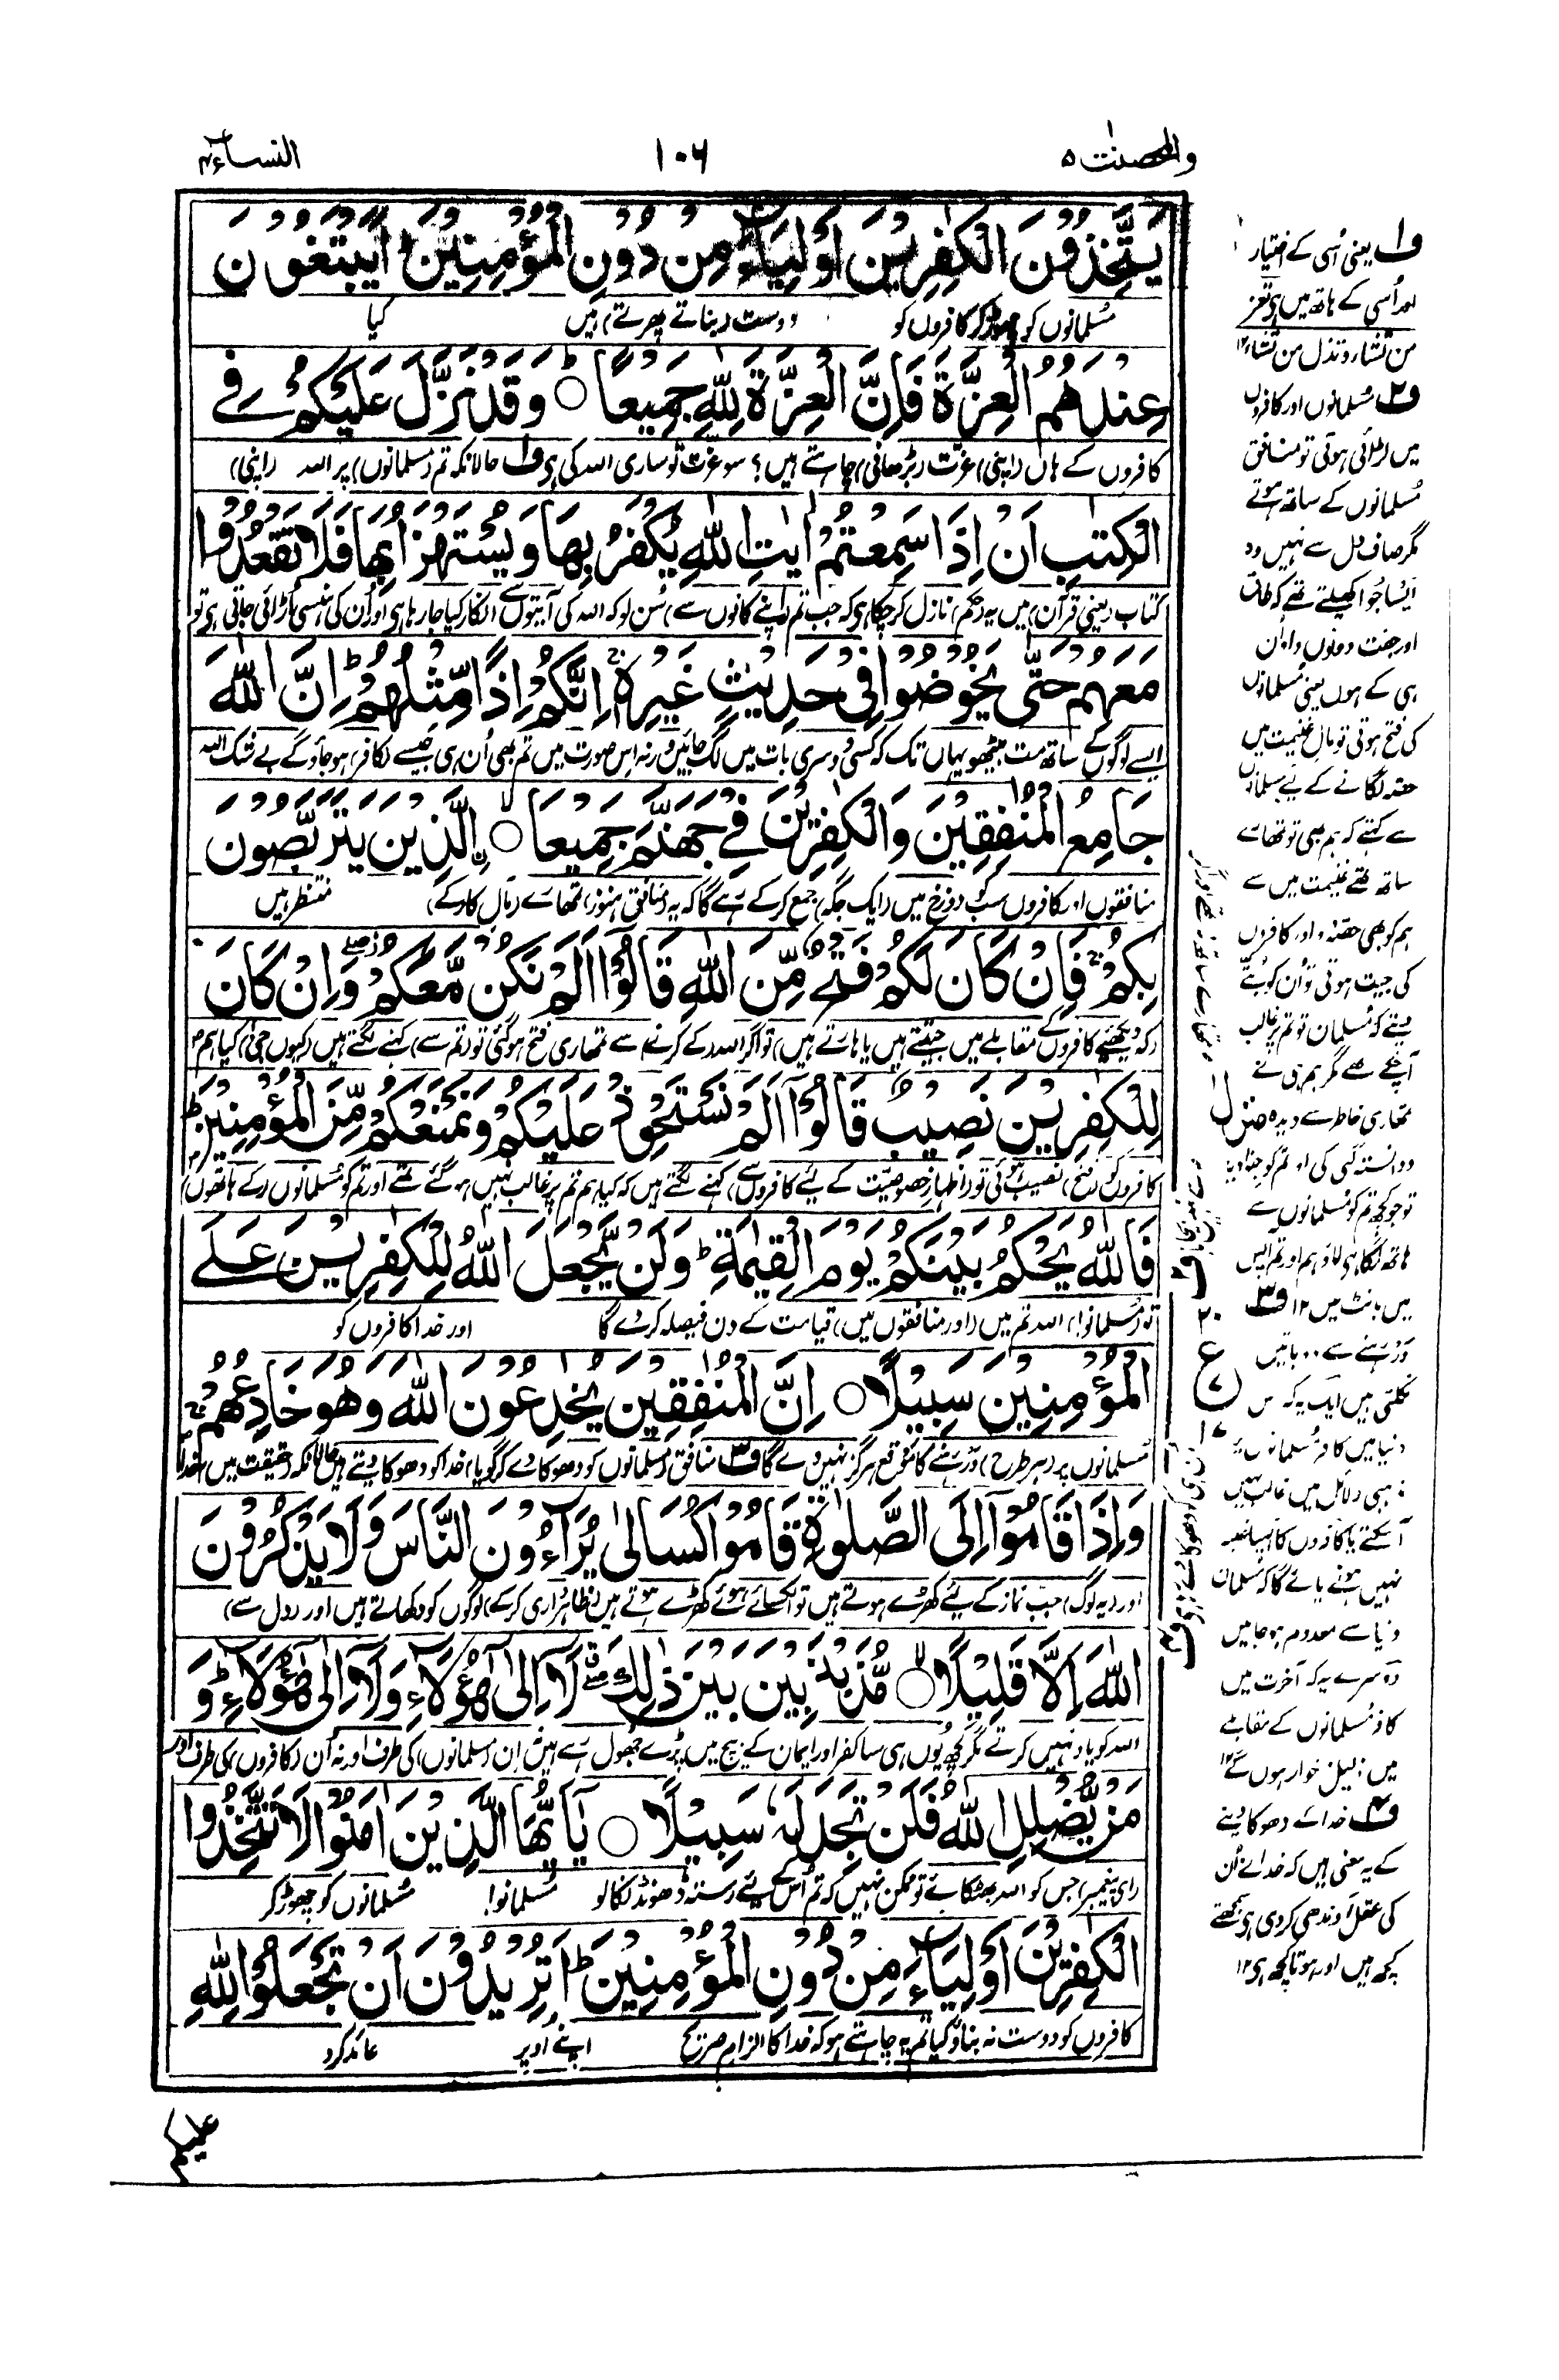 والمحصنت ۵
۱۰۶
النساء ۴
يَتَّخِذُوْنَ الْكٰفِرِيْنَ اَوْلِيَآءَ مِنْ دُوْنِ الْمُؤْمِنِيْنَ ؕ اَيَبْتَغُوْنَ
مُسلمانوں کو چھوڑ کر کافروں کو دوست (بناتے پھرتے) ہیں کیا
عِنْدَهُمُ الْعِزَّةَ فَاِنَّ الْعِزَّةَ لِلّٰهِ جَمِيْعًا ؕ○ وَقَدْ نَزَّلَ عَلَيْكُمْ فِے
کافروں کے ہاں (اپنی) عزت (بڑھانی) چاہتے ہیں؟ سو عزت تو ساری اللہ کی ہی ف۱ حالانکہ تم (مسلمانوں) پر اللہ (اپنی)
الْكِتٰبِ اَنْ اِذَا سَمِعْتُمْ اٰيٰتِ اللّٰهِ يُكْفَرُ بِهَا وَيُسْتَهْزَاُ بِهَا فَلَا تَقْعُدُوْا
کتاب (یعنی قرآن) میں یہ (حکم) نازل کر چکا ہی کہ جب تم (اپنے کانوں سے) سُن لو کہ اللہ کی آیتوں سے انکار کیا جا رہا ہی اور اُن کی ہنسی اُڑائی جاتی ہی تو
مَعَهُمْ حَتّٰى يَخُوْضُوْا فِيْ حَدِيْثٍ غَيْرِهٖٓ ۖ اِنَّكُمْ اِذًا مِّثْلُهُمْ ؕ اِنَّ اللّٰهَ
ایسے لوگوں کے ساتھ مت بیٹھو یہاں تک کہ کسی دوسری بات میں لگ جائیں ورنہ اس صورت میں تم بھی اُن ہی جیسے (کافر) ہو جاؤ گے بے شک اللہ
جَامِعُ الْمُنٰفِقِيْنَ وَالْكٰفِرِيْنَ فِے جَهَنَّمَ جَمِيْعًا ۙ○ الَّذِيْنَ يَتَرَبَّصُوْنَ
منافقوں اور کافروں سب کو دوزخ میں (ایک جگہ) جمع کر کے رہے گا کہ یہ (منافق ہنوز) تمھارے (مآل کار کے) منتظر ہیں
بِكُمْ ۚ فَاِنْ كَانَ لَكُمْ فَتْحٌ مِّنَ اللّٰهِ قَالُوْٓا اَلَمْ نَكُنْ مَّعَكُمْ ۖ وَاِنْ كَانَ
(کہ دیکھئیے کافروں کے مقابلے میں جیتتے ہیں یا ہارتے ہیں) تو اگر اللہ (کے کرنے) سے تمھاری فتح ہو گئی تو (تم سے) کہنے لگتے ہیں (کیوں جی) کیا ہم
لِلْكٰفِرِيْنَ نَصِيْبٌ قَالُوْٓا اَلَمْ نَسْتَحْوِذْ عَلَيْكُمْ وَنَمْنَعْكُمْ مِّنَ الْمُؤْمِنِيْنَ ؕ
کافروں کو (فتح) نصیب ہوئی تو (اظہار خصوصیت کے لیے کافروں سے) کہنے لگتے ہیں کہ کیا ہم تم پر غالب نہیں ہو گئے تھے اور تم کو مُسلمانوں (کے ہاتھوں)
فَاللّٰهُ يَحْكُمُ بَيْنَكُمْ يَوْمَ الْقِيٰمَةِ ؕ وَلَنْ يَّجْعَلَ اللّٰهُ لِلْكٰفِرِيْنَ عَلَے
تو (مُسلمانو!) اللہ تم میں (اور منافقوں میں) قیامت کے دن فیصلہ کر دے گا اور خدا کافروں کو
الْمُؤْمِنِيْنَ سَبِيْلًا ○ اِنَّ الْمُنٰفِقِيْنَ يُخٰدِعُوْنَ اللّٰهَ وَهُوَ خَادِعُهُمْ ۚ
مُسلمانوں پر (ہر طرح) وَر رہنے کا موقع ہرگز نہیں دے گا ف۳ منافق (مسلمانوں کو دھوکا دے کر گویا) خدا کو دھوکا دیتے ہیں حالانکہ (حقیقت میں) خدا
وَاِذَا قَامُوْٓا اِلَى الصَّلٰوةِ قَامُوْا كُسَالٰى يُرَآءُوْنَ النَّاسَ وَلَا يَذْكُرُوْنَ
اور (یہ لوگ) جب نماز کے لیے کھڑے ہوتے ہیں تو الکسائے ہوئے کھڑے ہوتے ہیں (ظاہر داری کر کے) لوگوں کو دکھاتے ہیں اور (دل سے)
اللّٰهَ اِلَّا قَلِيْلًا ۙ○ مُّذَبْذَبِيْنَ بَيْنَ ذٰلِكَ ۖ لَآ اِلٰى هٰٓؤُلَآءِ وَلَآ اِلٰى هٰٓؤُلَآءِ ؕ وَ
اللہ کو یاد نہیں کرتے مگر کچھ یُوں ہی سا کفر اور ایمان کے بیچ میں پڑے جھول رہے ہیں اِن (مسلمانوں) کی طرف اور نہ اُن (کافروں) کی طرف اور
مَنْ يُّضْلِلِ اللّٰهُ فَلَنْ تَجِدَ لَهٗ سَبِيْلًا ○ يٰٓاَيُّهَا الَّذِيْنَ اٰمَنُوْا لَا تَتَّخِذُوا
(ای پیغمبر) جس کو اللہ بھٹکائے تو ممکن نہیں کہ تم اُس کے لیے رستہ ڈھونڈ نکالو مُسلمانو! مُسلمانوں کو چھوڑ کر
الْكٰفِرِيْنَ اَوْلِيَآءَ مِنْ دُوْنِ الْمُؤْمِنِيْنَ ؕ اَتُرِيْدُوْنَ اَنْ تَجْعَلُوْا لِلّٰهِ
کافروں کو دوست نہ بناؤ کیا تم یہ چاہتے ہو کہ خدا کا الزام صریح اپنے اوپر عائد کرو
ف۱ یعنی اُسی کے اختیار
اور اُسی کے ہاتھ میں ہی تعز
من تشاء و تذل من تشاء ۱۲
ف۲ مُسلمانوں اور کافروں
میں لڑائی ہوتی تو منافق
مُسلمانوں کے ساتھ ہوتے
مگر صاف دل سے نہیں وہ
ایسا جُوا کھیلتے تھے کہ طاق
اور جفت دونوں داو ان
ہی کے ہوں یعنی مُسلمانوں
کی فتح ہوتی تو مال غنیمت میں
حصہ لگانے کے لیے مسلمانوں
سے کہتے کہ ہم بھی تو تمھارے
ساتھ تھے غنیمت میں سے
ہم کو بھی حصہ دو اور کافروں
کی جیت ہوتی تو اُن کو پٹی
دیتے کہ مُسلمان تو تم پر غالب
آ چکے تھے مگر ہم ہی نے
تمھاری خاطر سے دیدہ
منزل ۱
و دانستہ کمی کی اور تم کو جتا دیا
تو جو کچھ تم کو مُسلمانوں سے
ہاتھ لگا ہی لاؤ ہم اور تم آپس
میں بانٹ لیں ۱۲ ف۳
وَر رہنے سے دو باتیں
نکلتی ہیں ایک یہ کہ اس
دنیا میں کافر مُسلمانوں پر
مذہبی دلائل میں غالب نہیں
آ سکتے یا کافروں کا ایسا غلبہ
نہیں ہونے پائے گا کہ مُسلمان
دنیا سے معدوم ہو جائیں
دوسرے یہ کہ آخرت میں
کافر مُسلمانوں کے مقابلے
میں ذلیل خوار ہوں گے ۱۲
ف۴ خدا کے دھوکا دینے
کے یہ معنی ہیں کہ خدا نے اُن
کی عقل اوندھی کر دی ہی سمجھتے
کچھ ہیں اور ہوتا کچھ ہی ۱۲
۲۰
ع
۱۷